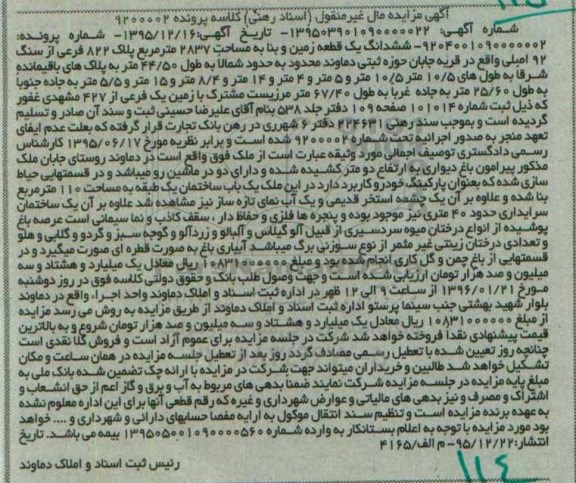 ۱۱۵
آگهی مزایده مال غیرمنقول (اسناد رهنی) کلاسه پرونده ۹۲۰۰۰۰۲
شماره آگهی: ۱۳۹۵۰۳۹۰۱۰۹۰۰۰۰۲۲- تاریخ آگهی:۱۳۹۵/۱۲/۱۶- شماره پرونده:
۹۲۰۴۰۰۱۰۹۰۰۰۰۰۰۲- ششدانگ یک قطعه زمین و بنا به مساحت ۲۸۳۷ مترمربع پلاک ۸۲۲ فرعی از سنگ
۹۲ اصلی واقع در قریه جابان حوزه ثبتی دماوند محدود به حدود شمالاً به طول ۴۴/۵۰ متر به پلاک های باقیمانده
شرقا به طول های ۱۰/۵ متر ۱۰/۵ متر و ۵ متر و ۴ متر و ۱۴ متر و ۸/۴ متر و ۱۵ متر و ۵/۵ متر به جاده جنوبا
به طول ۲۵/۶۰ متر به جاده غربا به طول ۶۷/۴۰ متر مرزیست مشترک با زمین یک فرعی از ۴۲۷ مشهدی غفور
که ذیل ثبت شماره ۱۰۱۰۱۴ صفحه ۱۰۹ دفتر جلد ۵۳۸ بنام آقای علیرضا حسینی ثبت و سند آن صادر و تسلیم
گردیده است و بموجب سند رهنی ۲۳۴۶۳۱ دفتر ۶ شهرری در رهن بانک تجارت قرار گرفته که بعلت عدم ایفای
تعهد منجر به صدور اجرائیه تحت شماره ۹۲۰۰۰۰۲ شده است و برابر نظریه مورخ ۱۳۹۵/۰۶/۱۷ کارشناس
رسمی دادگستری توصیف اجمالی مورد وثیقه عبارت است از ملک فوق واقع است در دماوند روستای جابان ملک
مذکور پیرامون باغ دیواری به ارتفاع دو متر کشیده شده و دارای دو در ماشین رو میباشد و در قسمتهایی حیاط
سازی شده که بعنوان پارکینگ خودرو کاربرد دارد در این ملک یک باب ساختمان یک طبقه به مساحت ۱۱۰ مترمربع
بنا شده و علاوه بر آن یک چشمه استخر قدیمی و یک آب نمای تازه ساز نیز مشاهده شد علاوه بر آن یک ساختمان
سرایداری حدود ۴۰ متری نیز موجود بوده و پنجره ها فلزی و حفاظ دار ، سقف کاذب و نما سیمانی است عرصه باغ
پوشیده از انواع درختان میوه سردسیری از قبیل آلو گیلاس و آلبالو و زردآلو و گوجه سبز و گردو و گلابی و هلو
و تعدادی درختان زینتی غیر مثمر از نوع سوزنی برگ میباشد آبیاری باغ به صورت قطره ای صورت میگیرد و در
قسمتهایی از باغ چمن و گل کاری انجام شده بود و مبلغ ۱۰۸۳۱۰۰۰۰۰۰ ریال معادل یک میلیارد و هشتاد و سه
میلیون و صد هزار تومان ارزیابی شده است وجهت وصول طلب بانک و حقوق دولتی کلاسه فوق در روز دوشنبه
مورخ ۱۳۹۶/۰۱/۲۱ از ساعت ۹ الی ۱۲ ظهر در اداره ثبت اسناد و املاک دماوند واحد اجرا، واقع در دماوند
بلوار شهید بهشتی جنب سینما پرستو اداره ثبت اسناد و املاک دماوند از طریق مزایده به روش می رسد مزایده
از مبلغ ۱۰۸۳۱۰۰۰۰۰۰ ریال معادل یک میلیارد و هشتاد و سه میلیون و صد هزار تومان شروع و به بالاترین
قیمت پیشنهادی نقدا فروخته خواهد شد شرکت در جلسه مزایده برای عموم آزاد است و فروش کلا نقدی است
چنانچه روز تعیین شده با تعطیل رسمی مصادف گردد روز بعد از تعطیل جلسه مزایده در همان ساعت و مکان
تشکیل خواهد شد طالبین و خریداران میتواند جهت شرکت در مزایده با ارائه چک تضمین شده بانک ملی به
مبلغ پایه مزایده در جلسه مزایده شرکت نمایند ضمنا بدهی های مربوط به آب و برق و گاز اعم از حق انشعاب و
اشتراک و مصرف و نیز بدهی های مالیاتی و عوارض شهرداری و غیره که رقم قطعی آنها برای این اداره معلوم نشده
به عهده برنده مزایده است و تنظیم سند انتقال موکول به ارایه مفصا حسابهای دارائی و شهرداری و .... خواهد
بود مورد مزایده با توجه به اعلام بستانکار به وارده شماره ۱۳۹۵۰۵۰۰۱۰۹۰۰۰۰۵۶۰ بیمه می باشد. تاریخ
انتشار:۹۵/۱۲/۲۲- م الف/۴۱۶۵
رئیس ثبت اسناد و املاک دماوند
۱۱۴